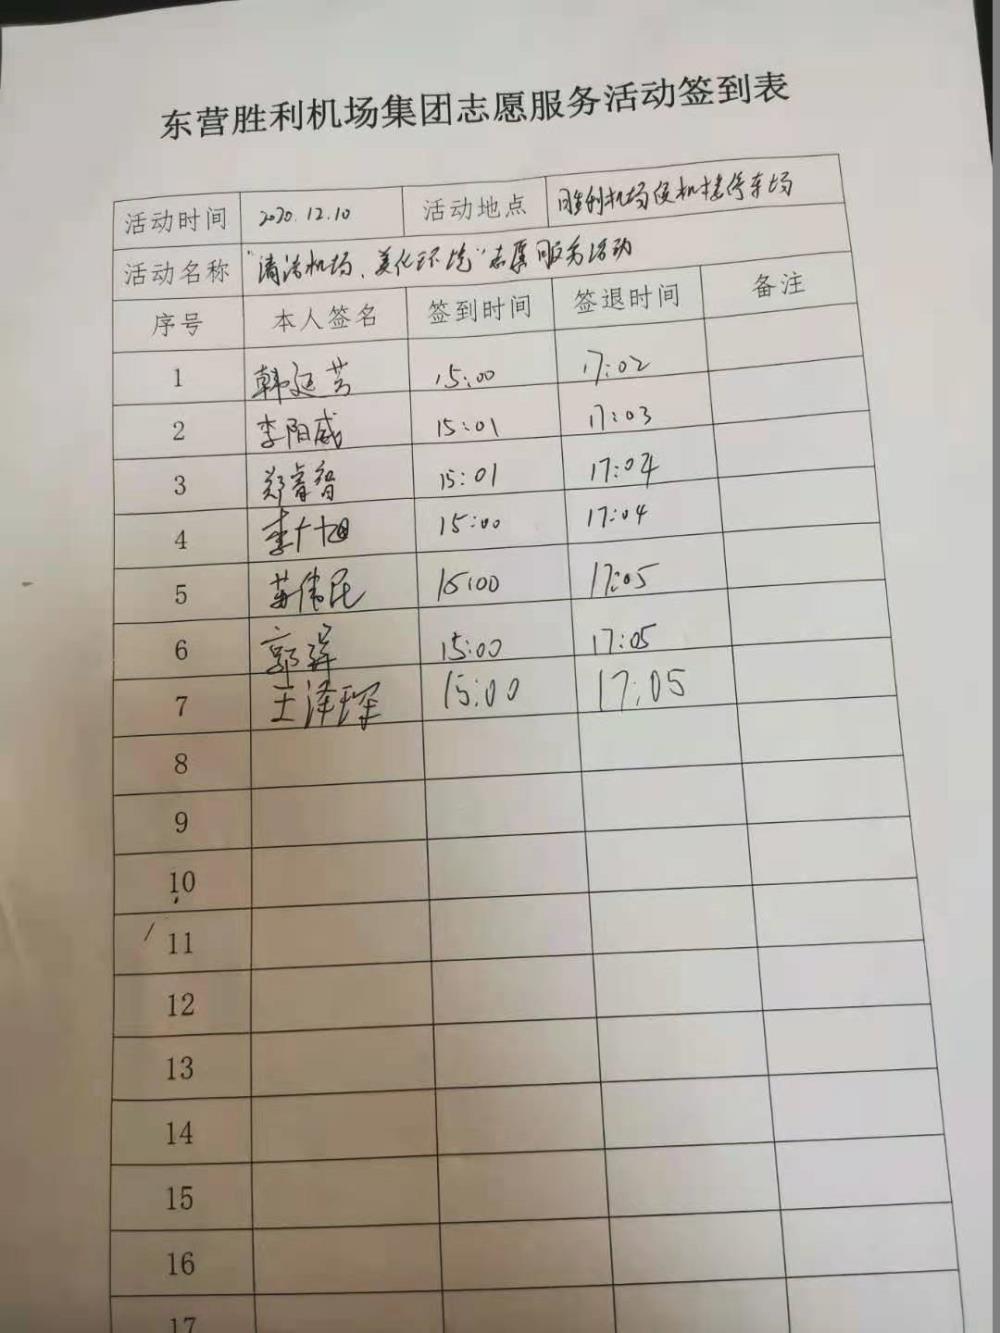 东营胜利机场集团志愿服务活动签到表
活动时间 2020.12.10 活动地点 胜利机场候机楼停车场
活动名称 "清洁机场、美化环境"志愿服务活动
序号 本人签名 签到时间 签退时间 备注
1 韩延芳 15:00 17:02
2 李阳威 15:01 17:03
3 郑睿智 15:01 17:04
4 15:00 17:04
5 苗伟民 15:00 17:05
6 15:00 17:05
7 王泽琛 15:00 17:05
8
9
10
11
12
13
14
15
16
17